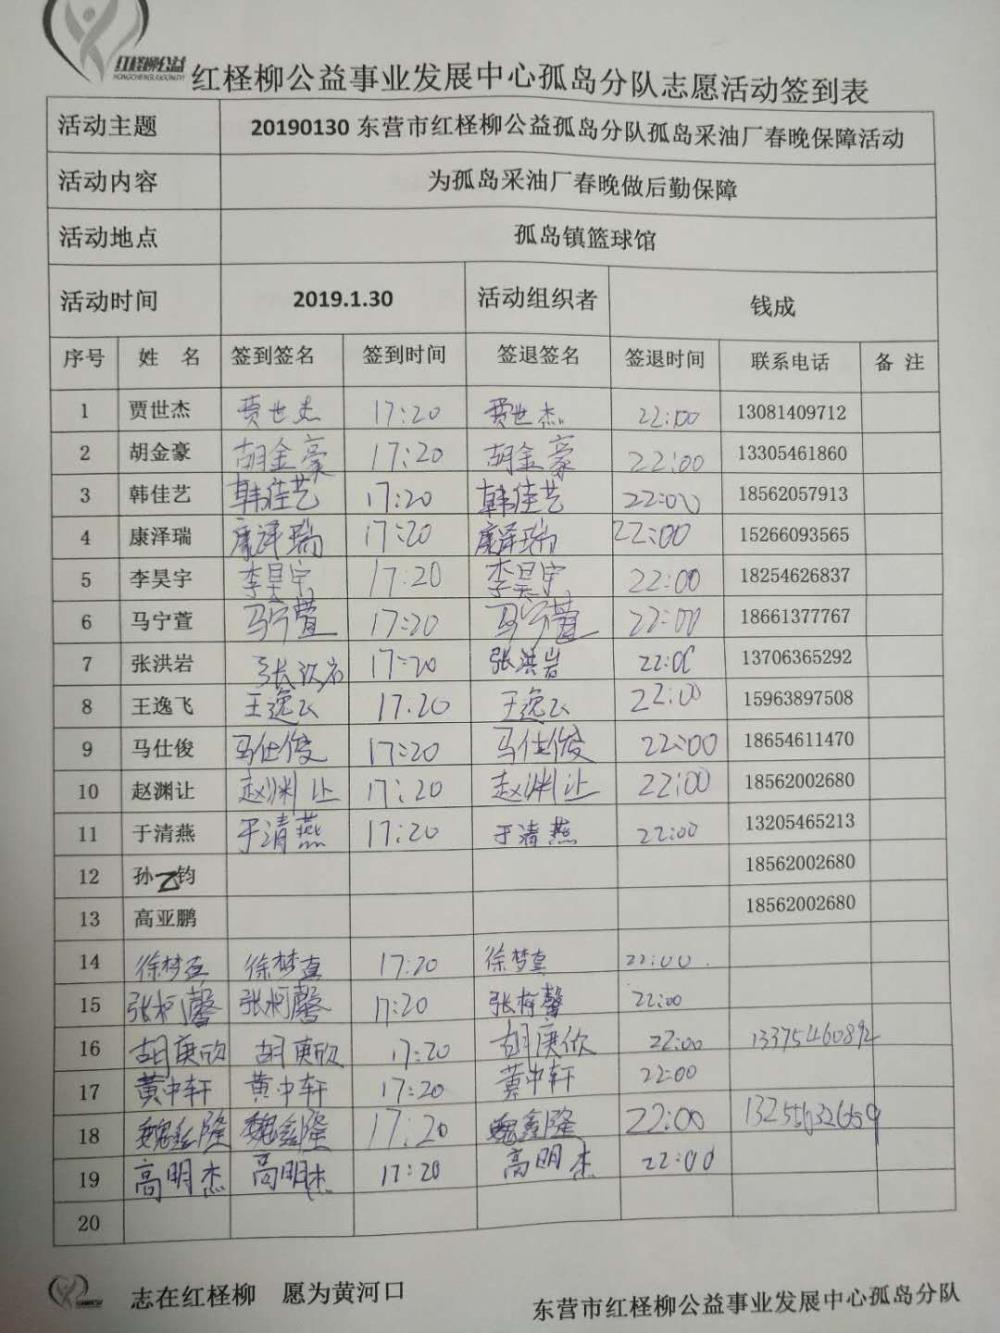 红柽柳公益
红柽柳公益事业发展中心孤岛分队志愿活动签到表
活动主题 20190130 东营市红柽柳公益孤岛分队孤岛采油厂春晚保障活动
活动内容 为孤岛采油厂春晚做后勤保障
活动地点 孤岛镇篮球馆
活动时间 2019.1.30 活动组织者 钱成
序号 姓 名 签到签名 签到时间 签退签名 签退时间 联系电话 备 注
1 贾世杰 贾世杰 17:20 贾世杰 22:00 13081409712
2 胡金豪 胡金豪 17:20 胡金豪 22:00 13305461860
3 韩佳艺 韩佳艺 17:20 韩佳艺 22:00 18562057913
4 康泽瑞 康泽瑞 17:20 康泽瑞 22:00 15266093565
5 李昊宇 李昊宇 17:20 李昊宇 22:00 18254626837
6 马宁萱 马宁萱 17:20 马宁萱 22:00 18661377767
7 张洪岩 张洪岩 17:20 张洪岩 22:00 13706365292
8 王逸飞 王逸飞 17:20 王逸飞 22:00 15963897508
9 马仕俊 马仕俊 17:20 马仕俊 22:00 18654611470
10 赵渊让 赵渊让 17:20 赵渊让 22:00 18562002680
11 于清燕 于清燕 17:20 于清燕 22:00 13205465213
12 孙 钧 18562002680
13 高亚鹏 18562002680
14 徐梦真 徐梦真 17:20 徐梦真 22:00
15 张柯馨 张柯馨 17:20 张柯馨 22:00
16 胡庚欣 胡庚欣 17:20 胡庚欣 22:00
17 黄中轩 黄中轩 17:20 黄中轩 22:00
18 魏鑫隆 魏鑫隆 17:20 魏鑫隆 22:00
19 高明杰 高明杰 17:20 高明杰 22:00
20
志在红柽柳 愿为黄河口
东营市红柽柳公益事业发展中心孤岛分队